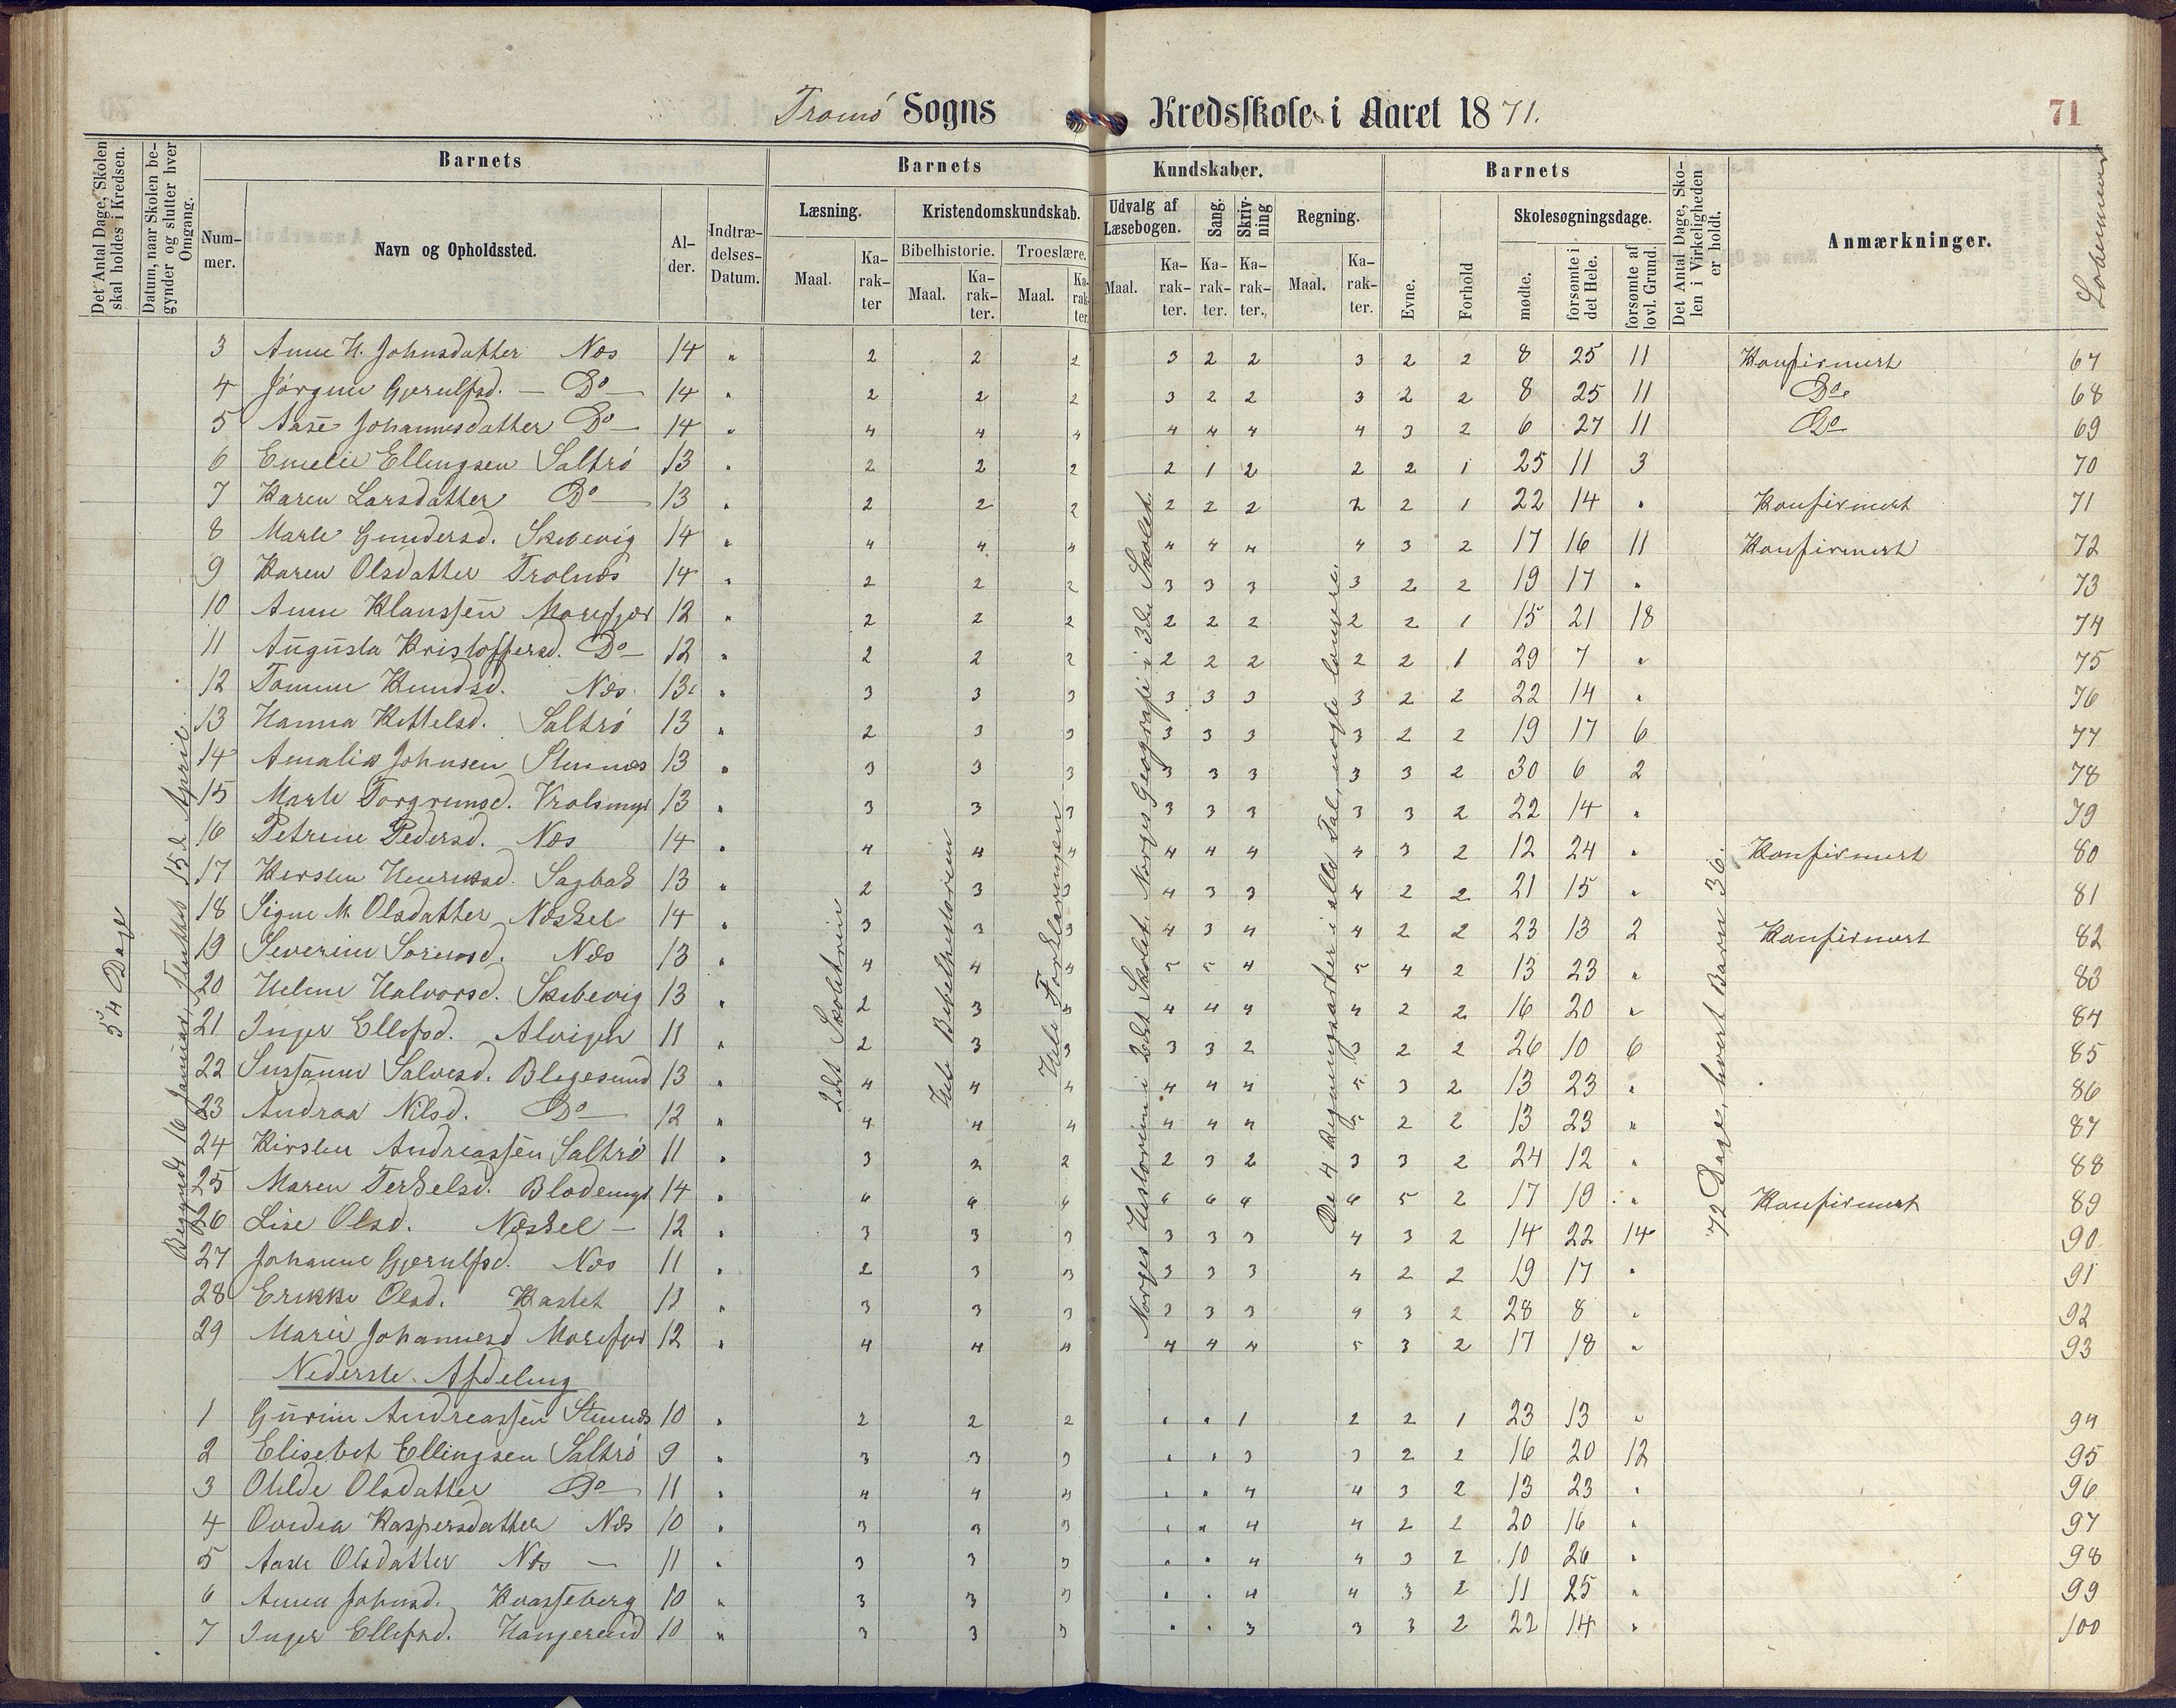 Tromø Sogns Kredsskole i Aaret 1871.
71
Det Antal Dage, Skolen skal holdes i Kredsen.
Datum, naar Skolen begynder og slutter hver Omgang.
Barnets
Barnets
Kundskaber.
Barnets
Det Antal Dage, Skolen i Virkeligheden er holdt.
Anmærkninger.
Løbenummer
Nummer.
Navn og Opholdssted.
Alder.
Indtrædelses-Datum.
Læsning.
Kristendomskundskab.
Udvalg af Læsebogen.
Sang.
Skrivning
Regning.
Evne.
Forhold
Skolesøgningsdage.
Bibelhistorie.
Troeslære.
Maal.
Karakter
Maal.
Karakter.
Maal.
Karakter.
Maal.
Karakter.
Karakter.
Karakter.
Maal.
Karakter.
mødte.
forsømte i det Hele.
forsømte af lovl. Grund.
54 Dage
Begyndt 16 Januar, sluttet 15de April.
2det Skoletrin
Hele Bibelhistorien
Hele Forklaringen
Norges Historien i 2det Skolet. Norges Geografi i 3de Skolet.
De 4 Regningsarter i hele Tal, nogle længere.
72 Dage, hvert Barn 36.
3 Anne H. Johnsdatter Næs 14 " 2 2 2 3 2 2 3 2 2 8 25 11 Konfirmert 67
4 Jørgine Gjerulfsd. — Do — 14 " 2 2 2 3 2 2 3 2 2 8 25 11 Do 68
5 Aase Johannesdatter Do — 14 " 4 4 4 4 4 4 4 3 2 6 27 11 Do 69
6 Emelie Ellingsen Saltrø 13 " 2 2 2 2 1 2 2 2 1 25 11 3 70
7 Karen Larsdatter Do — 13 " 2 2 2 2 2 2 2 2 1 22 14 " Konfirmert 71
8 Marte Gundersd. Skibevig 14 " 4 4 4 4 4 4 4 3 2 17 16 11 Konfirmert 72
9 Karen Olsdatter Trolnæs 14 " 2 2 2 3 3 3 3 2 2 19 17 " 73
10 Anne Klaussen Morefjær 12 " 2 2 2 2 2 2 2 2 1 15 21 18 74
11 Augusta Kristoffersd. Do — 12 " 2 2 2 2 2 2 2 2 1 29 7 " 75
12 Tomine Knudsd. Næs 13 " 3 3 3 3 3 3 3 2 2 22 14 " 76
13 Hanna Kittelsd. Saltrø 13 " 2 3 3 3 3 3 3 2 2 19 17 6 77
14 Amalia Johnsen Stennæs 13 " 3 3 3 3 3 3 3 3 2 30 6 2 78
15 Marte Torgrimsd. 13 " 3 3 3 3 3 3 3 3 2 22 14 " 79
16 Petrine Pedersd. Næs 14 " 4 4 4 4 4 4 4 3 2 12 24 " Konfirmert 80
17 Kirsten Henriksd. 13 " 2 3 3 4 3 3 4 2 2 21 15 " 81
18 Signe M. Olsdatter Næskel 14 " 3 3 3 4 3 4 4 2 2 23 13 2 Konfirmert 82
19 Severine Sørensd. Næs 13 " 4 4 4 5 5 4 5 4 2 13 23 " 83
20 Helene Halvorsd. Skibevig 13 " 2 3 4 4 4 4 4 2 2 16 20 " 84
21 Inger Ellefsd. Alvigen 11 " 2 3 3 3 3 2 3 2 2 26 10 6 85
22 Susanne Salvesd. Blegesund 13 " 4 4 4 4 4 4 5 3 2 13 23 " 86
23 Andrea Nilsd. Do — 12 " 4 4 4 4 4 4 5 2 2 13 23 " 87
24 Kirsten Andreassen Saltrø 11 " 3 2 2 2 3 2 3 3 2 24 12 " 88
25 Maren Terkelsd. 14 " 6 6 6 6 6 6 6 5 2 17 19 " Konfirmert 89
26 Lise Olsd. Næskel — 12 " 3 3 3 3 3 3 4 3 2 14 22 14 90
27 Johanne Gjerulfsd. Næs 11 " 2 3 3 3 3 3 4 2 2 19 17 " 91
28 Erikke Olsd. Kastet 11 " 3 3 3 3 3 3 4 3 2 28 8 " 92
29 Marie Johannesd Morefjær 12 " 4 4 4 4 4 4 5 3 2 17 18 " 93
Nederste Afdeling
1 Gurine Andreassen Stennæs 10 " 2 2 2 " " 1 2 2 1 23 13 " 94
2 Elisebet Ellingsen Saltrø 9 " 3 3 3 " " 3 3 2 2 16 20 12 95
3 Otilde Olsdatter Do — 11 " 4 4 4 " " 4 4 3 2 13 23 " 96
4 Ovidia Kaspersdatter Næs 10 " 3 3 3 " " 4 4 2 2 20 16 " 97
5 Aase Olsdatter Næs — 11 " 3 3 3 " " 4 4 3 2 10 26 " 98
6 Anna Johnsd. Kvasseberg 10 " 3 3 3 " " 4 4 3 2 11 25 " 99
7 Inger Ellefsd. 10 " 3 3 3 " " 3 3 3 2 22 14 " 100